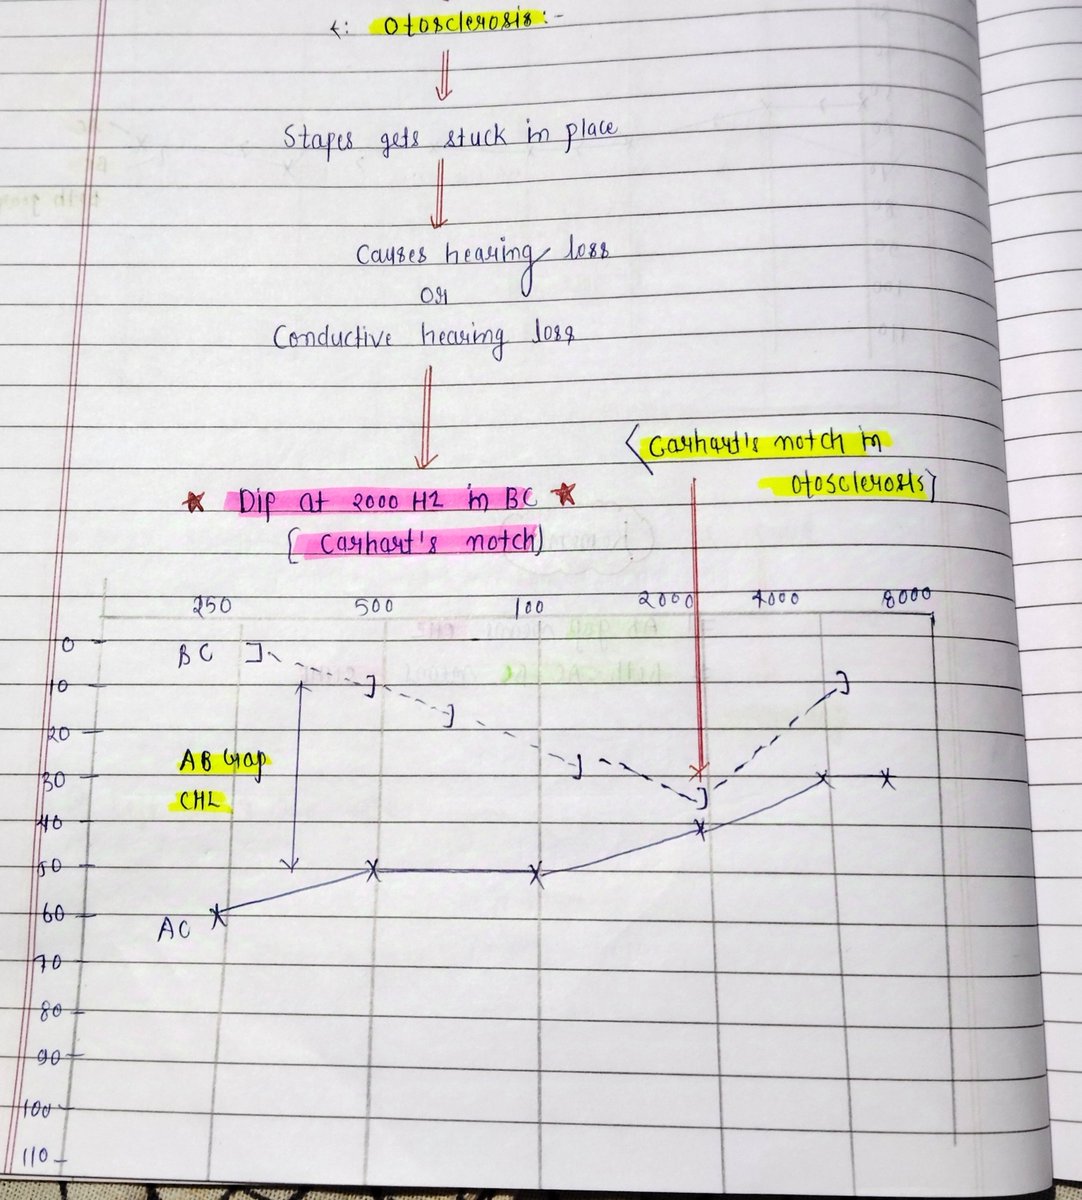 ←: Otosclerosis:-
Stapes gets stuck in place
Causes hearing loss
or
Conductive hearing loss
(Carhart's notch in
otosclerosis)
★ Dip at 2000 Hz in BC ★
(Carhart's notch)
250 500 100 2000 4000 8000
0
BC
10
20
AB Gap
30
CHL
40
50
60
AC
70
80
90
100
110